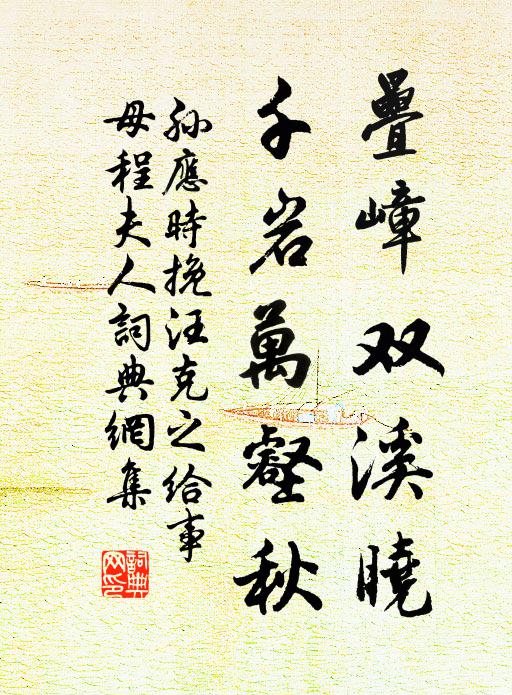 疊嶂双溪曉
千岩萬壑秋
孙應時挽汪克之给事
母程夫人詞典網集
詞典网印